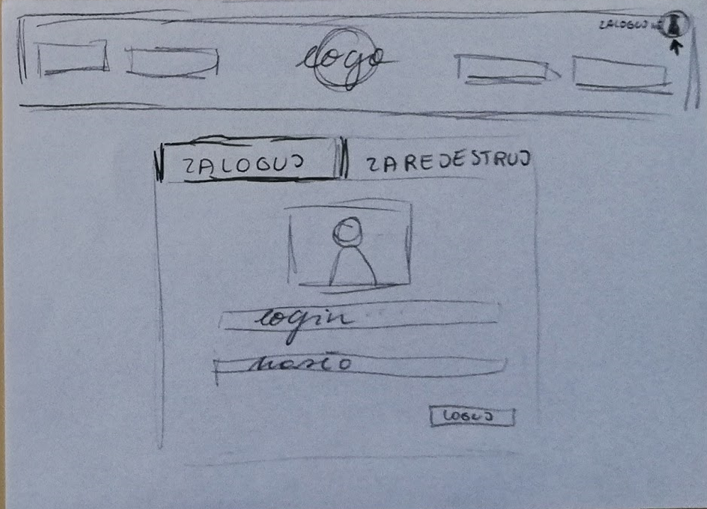 ZALOGUJ
logo
ZALOGUJ ZAREJESTRUJ
login
hasło
LOGUJ